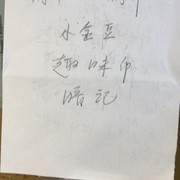 小金豆
趣味印
暗记